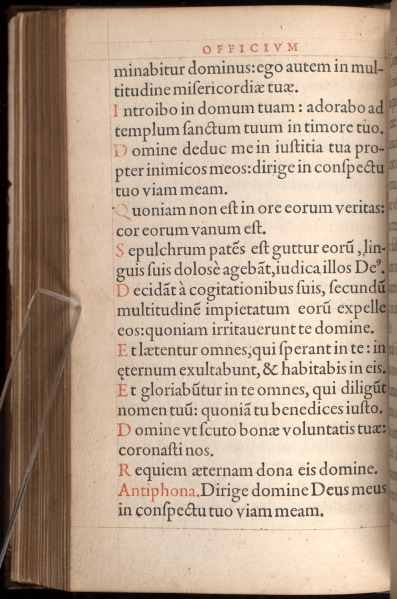 OFFICIVM
minabitur dominus:ego autem in mul-
titudine miſericordiæ tuæ.
Introibo in domum tuam : adorabo ad
templum ſanctum tuum in timore tuo.
Domine deduc me in iuſtitia tua pro-
pter inimicos meos:dirige in conſpectu
tuo viam meam.
Quoniam non eſt in ore eorum veritas:
cor eorum vanum eſt.
Sepulchrum patẽs eſt guttur eorũ , lin-
guis ſuis dolosè agebãt,iudica illos Deꝰ.
Decidãt à cogitationibus ſuis, ſecundũ
multitudinẽ impietatum eorũ expelle
eos:quoniam irritauerunt te domine.
Et lætentur omnes,qui ſperant in te : in
ęternum exultabunt, & habitabis in eis.
Et gloriabũtur in te omnes, qui diligũt
nomen tuũ: quoniã tu benedices iuſto.
Domine vt ſcuto bonæ voluntatis tuæ:
coronaſti nos.
Requiem æternam dona eis domine.
Antiphona.Dirige domine Deus meus
in conſpectu tuo viam meam.